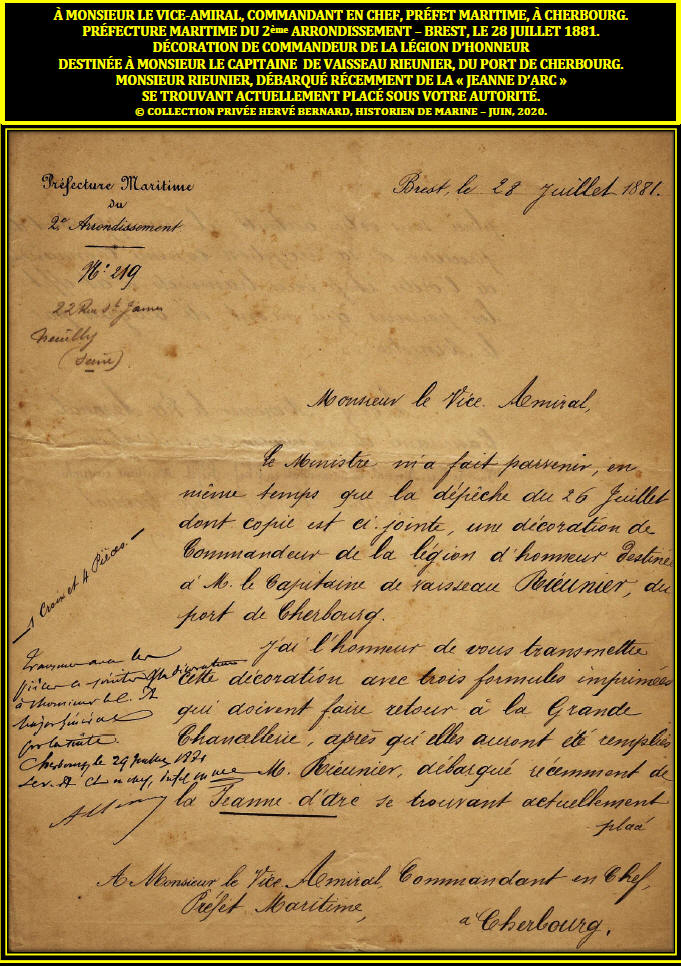 À MONSIEUR LE VICE-AMIRAL, COMMANDANT EN CHEF, PRÉFET MARITIME, À CHERBOURG.
PRÉFECTURE MARITIME DU 2ème ARRONDISSEMENT – BREST, LE 28 JUILLET 1881.
DÉCORATION DE COMMANDEUR DE LA LÉGION D’HONNEUR
DESTINÉE À MONSIEUR LE CAPITAINE DE VAISSEAU RIEUNIER, DU PORT DE CHERBOURG.
MONSIEUR RIEUNIER, DÉBARQUÉ RÉCEMMENT DE LA « JEANNE D’ARC »
SE TROUVANT ACTUELLEMENT PLACÉ SOUS VOTRE AUTORITÉ.
© COLLECTION PRIVÉE HERVÉ BERNARD, HISTORIEN DE MARINE – JUIN, 2020.
Préfecture Maritime
du
2e Arrondissement
Brest, le 28 Juillet 1881.
N° 219
22 Rue St James
Neuilly
(Seine)
Monsieur le Vice Amiral,
Le Ministre m'a fait parvenir, en
même temps que la dépêche du 26 Juillet
dont copie est ci-jointe, une décoration de
Commandeur de la légion d'honneur destinée
à M. le Capitaine de vaisseau Rieunier, du
port de Cherbourg.
1 Croix et 4 Pièces.
J'ai l'honneur de vous transmettre
cette décoration avec trois formules imprimées
qui doivent faire retour à la Grande
Chancellerie, après qu'elles auront été remplies
M. Rieunier, débarqué récemment de
la Jeanne d'arc se trouvant actuellement
placé
à Monsieur le
Major Général
Cherbourg, le 29 Juillet 1881
A Monsieur le Vice Amiral, Commandant en Chef,
Préfet Maritime,
à Cherbourg.